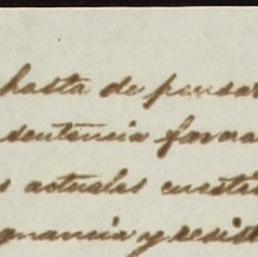 hasta de pensar
sentencia favora
s actuales cuesti
gnancia y resist